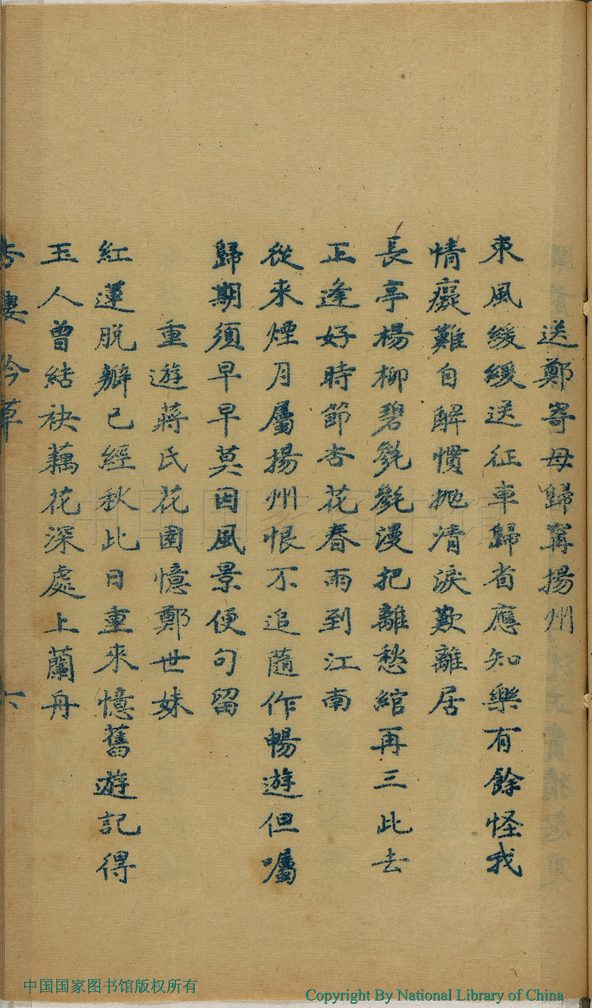 送鄭寄母歸甯揚州
東風緩緩送征車歸省應知樂有餘怪我
情癡難自解慣拋清淚歎離居
長亭楊柳碧毿毿漫把離愁綰再三此去
正逢好時節杏花春雨到江南
從來煙月屬揚州恨不追隨作暢遊但囑
歸期須早早莫因風景便句留
重遊蔣氏花園憶鄭世妹
紅蓮脫瓣已經秋此日重來憶舊遊記得
玉人曾結袂藕花深處上蘭舟
吟草
六
中国国家图书馆版权所有
Copyright By National Library of China